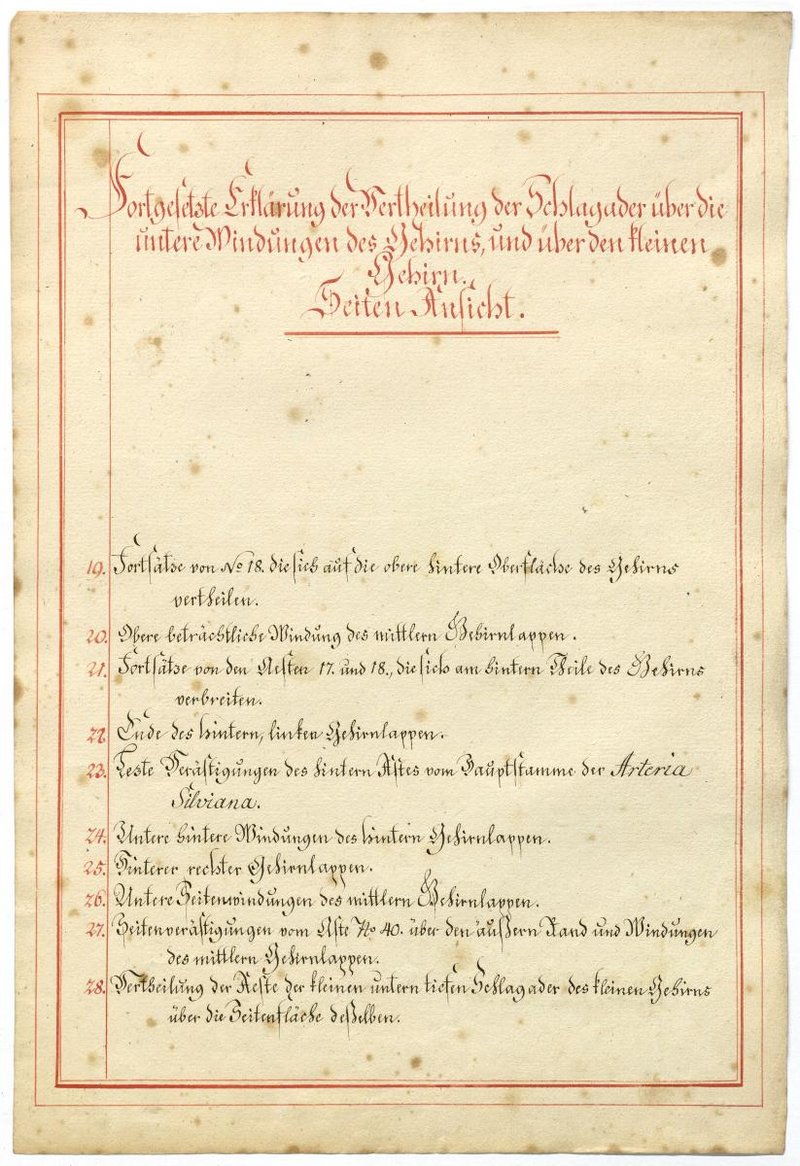 Fortgesetzte Erklärung der Vertheilung der Schlagader über die
untere Windungen des Gehirns, und über den kleinen
Gehirn.,
Seiten Ansicht.
19. Fortsätze von No 18. die sich auf die obere hintere Oberfläche des Gehirns
vertheilen.
20. Obere beträchtliche Windung des mittlern Gehirnlappen.
21. Fortsätze von den Aesten 17. und 18., die sich am hintern Theile des Gehirns
verbreiten.
22. Ende des hintern, linken Gehirnlappen.
23. Letzte Verästigungen des hintern Astes vom Hauptstamme der Arteria
Silviana.
24. Untere hintere Windungen des hintern Gehirnlappen.
25. Hinterer rechter Gehirnlappen.
26. Untere Seitenwindungen des mittlern Gehirnlappen.
27. Seitenverästigungen vom Aste No 40. über den äußern Rand und Windungen
des mittlern Gehirnlappen.
28. Vertheilung der Aeste der kleinen untern tiefen Schlagader des kleinen Gehirns
über die Seitenfläche deßelben.